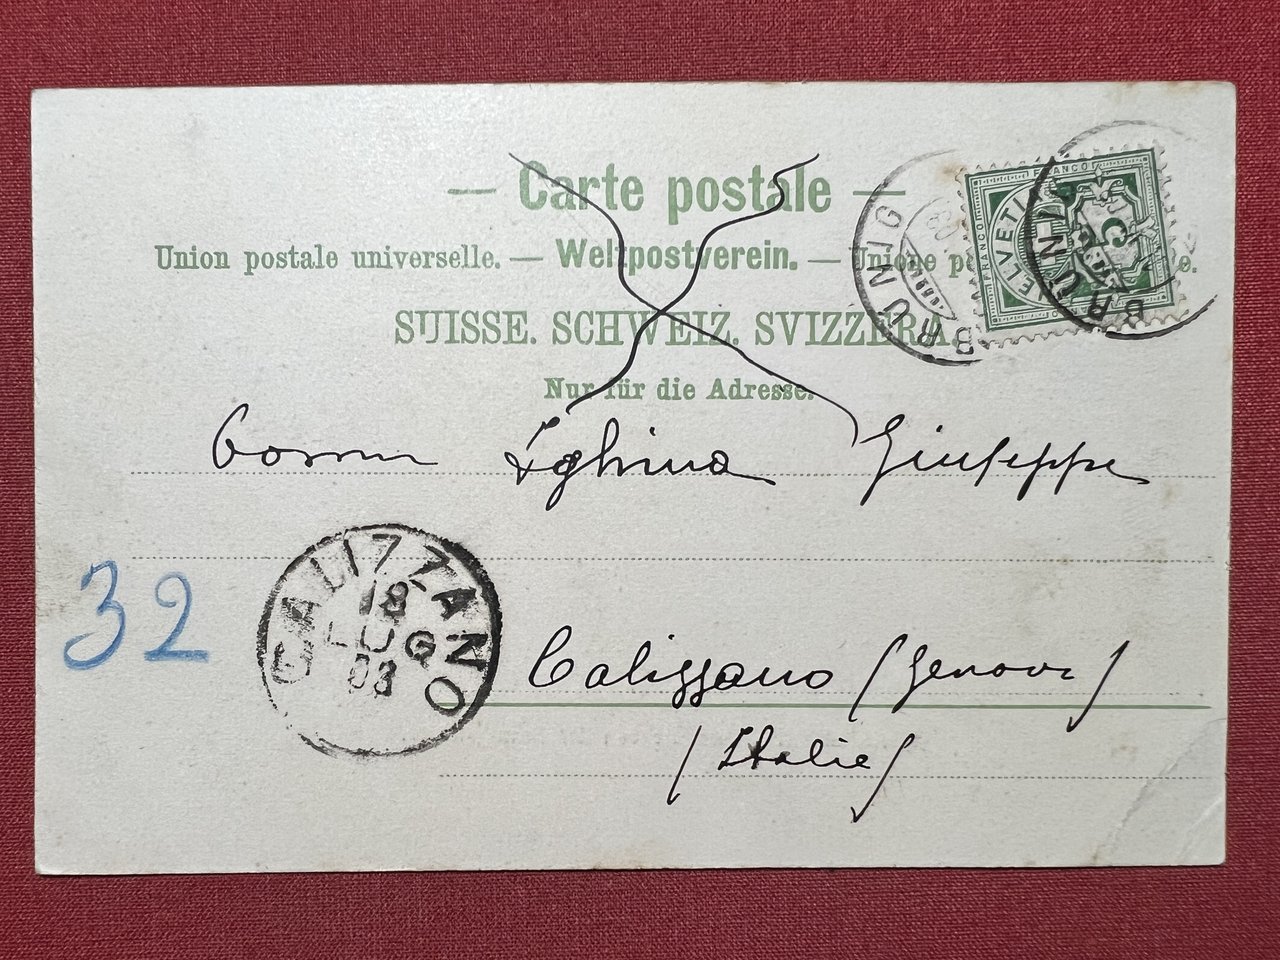 — Carte postale —
Union postale universelle. — Weltpostverein. — Unione p e.
SUISSE. SCHWEIZ. SVIZZERA.
Nur für die Adresse.
BRÜNIG
BRÜNIG
FRANCO
FRANCO
HELVETIA
5
Giuseppe
CALIZZANO
18
LUG
03
32
Calizzano (Genova)
(Italie)